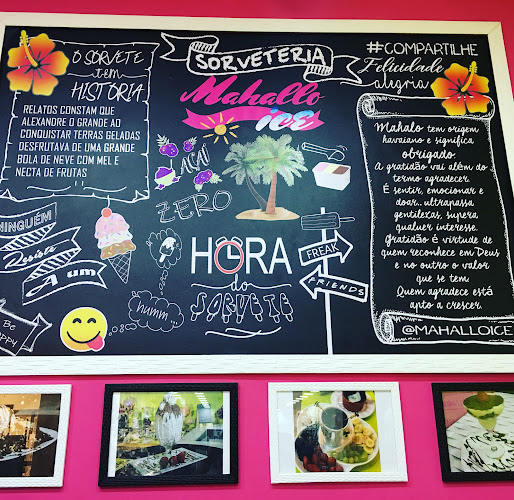 O SORVETE
tem
HISTÓRIA
RELATOS CONSTAM QUE
ALEXANDRE O GRANDE AO
CONQUISTAR TERRAS GELADAS
DESFRUTAVA DE UMA GRANDE
BOLA DE NEVE COM MEL E
NECTA DE FRUTAS
NINGUÉM
Resiste
A um
Be
Happy
SORVETERIA
Mahallo
ice
AÇAÍ
ZERO
HORA
do
SORVETE
humm
FREAK
FRIENDS
#COMPARTILHE
Felicidade
alegria
Mahalo tem origem
havaiano e significa
obrigado.
A gratidão vai além do
termo agradecer.
É sentir, emocionar e
doar.. ultrapassa
gentilezas, supera
qualuer interesse.
Gratidão é virtude de
quem reconhece em Deus
e no outro o valor
que se tem.
Quem agradece está
apto a crescer.
@MAHALLOICE